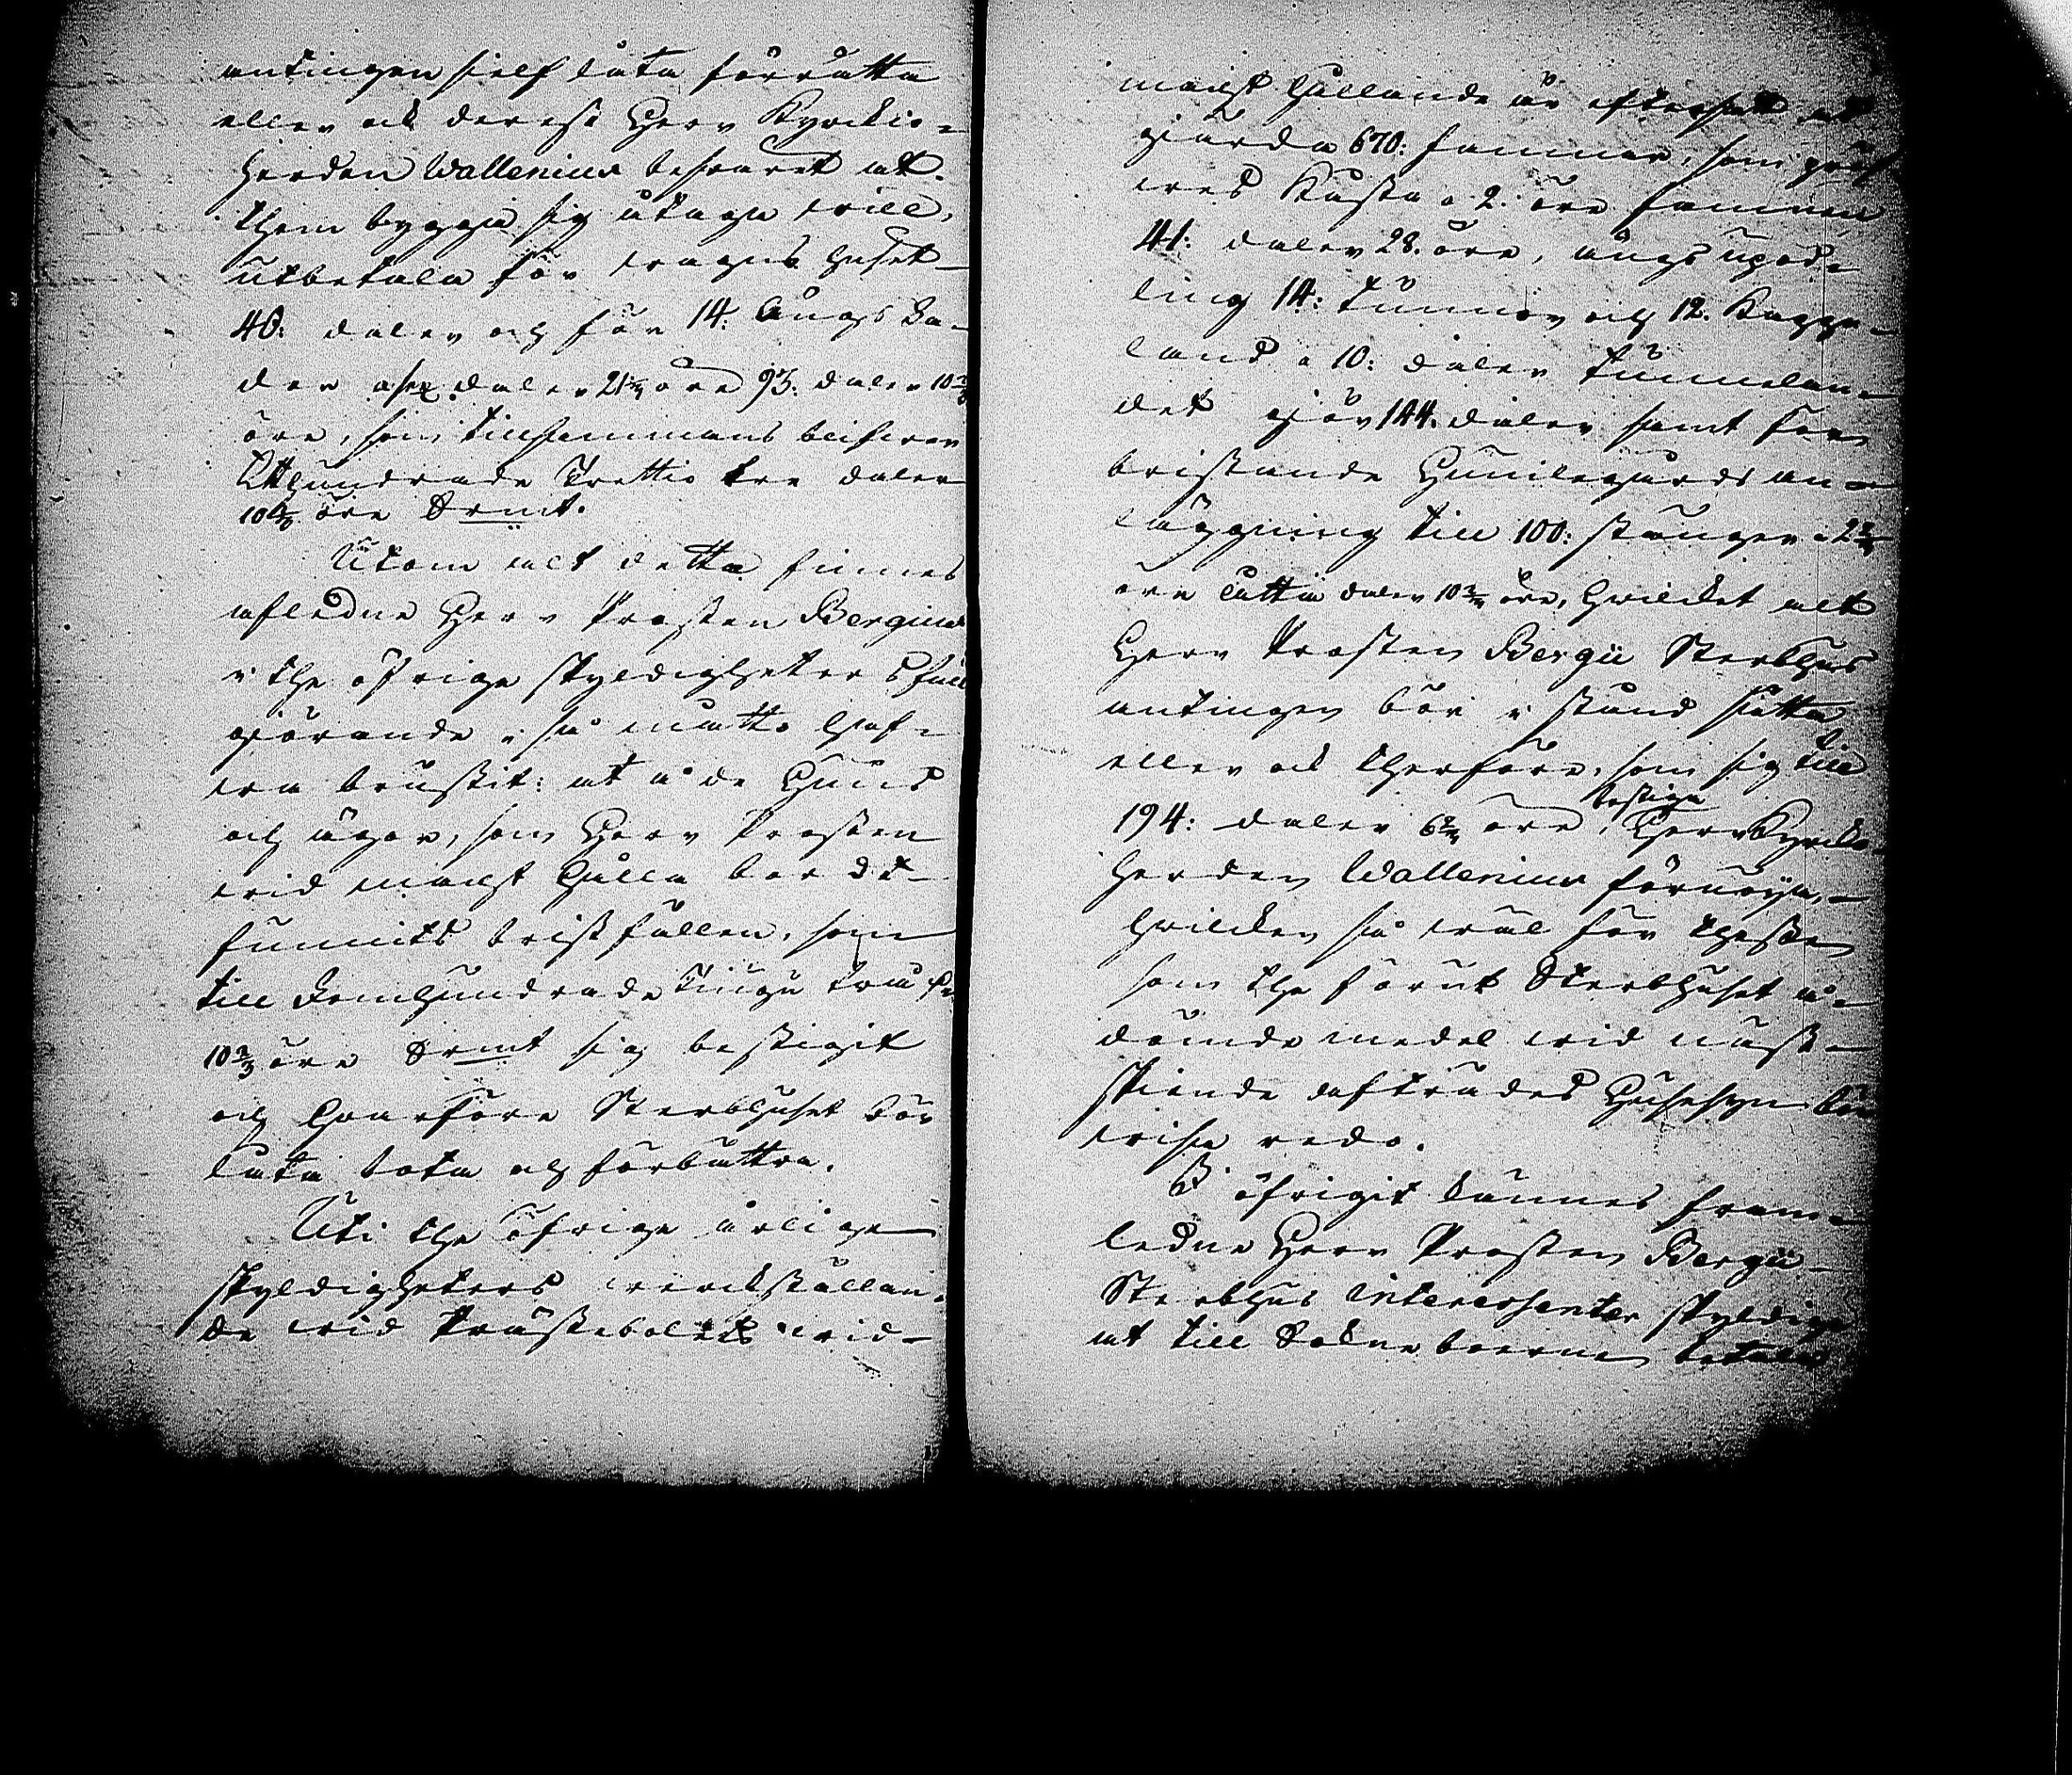 antingen sielf låta förrätta
eller ock derest Herr Kyrckio-
herden Wallenius besparet at
them byggia sig åtaga will,
utbetala för wagns huset
40: daler och för 14: ängs la-
dor a sex daler 21⅓ öre 93: daler 10⅔
öre, som tillsammans blifwer
Etthundrade Trettio tre daler
10⅔ öre Srmt.
Utom alt detta finnes
afledne Herr Prosten Bergius
i the öfrige skyldigheters full
giörande i så måtto haf-
wa brustit: at å de Huus
och ägor, som Herr Prosten
wid macht hålla bordt
funnits bristfällen, som
till femhundrade tiugu twå dr
10⅔ öre Srmt sig bestigit
och hwarföre Sterbhuset bör
låta bota och förbättra.
Uti the öfrige årlige
skyldigheters wirckställan-
de wid Prästebolets wid-
macht hållande är eftersatt at
giärda 670: famnar, som giör
wed Kasta a 2: öre famnen
41: daler 28. öre, ängs upod-
ling 14: tunnor och 12. Kappe-
land a 10: daler tunnelan-
det giör 144. daler samt for
bristande Humlegårds an-
läggning till 100: stänger a 2⅔
öre Åtta daler 10⅔ öre, hwilcket alt
Herr Prosten Bergii Sterbhus
antingen bör i stånd sätta
eller ock therföre, som sig till
194: daler 6⅔ öre bestiga, Herr Kyrcko-
herden Wallenius förnöya,
hwilcken så wäl för thessa
som the förut Sterbhuset å-
dömde medel wid näst-
skiende afträdes Huhsesyn bör
wisa redo.
I öfrigit kännes fram-
ledne Herr Prosten Bergii
Sterbhus interessenter skyldige
at till Socknaboerne betala